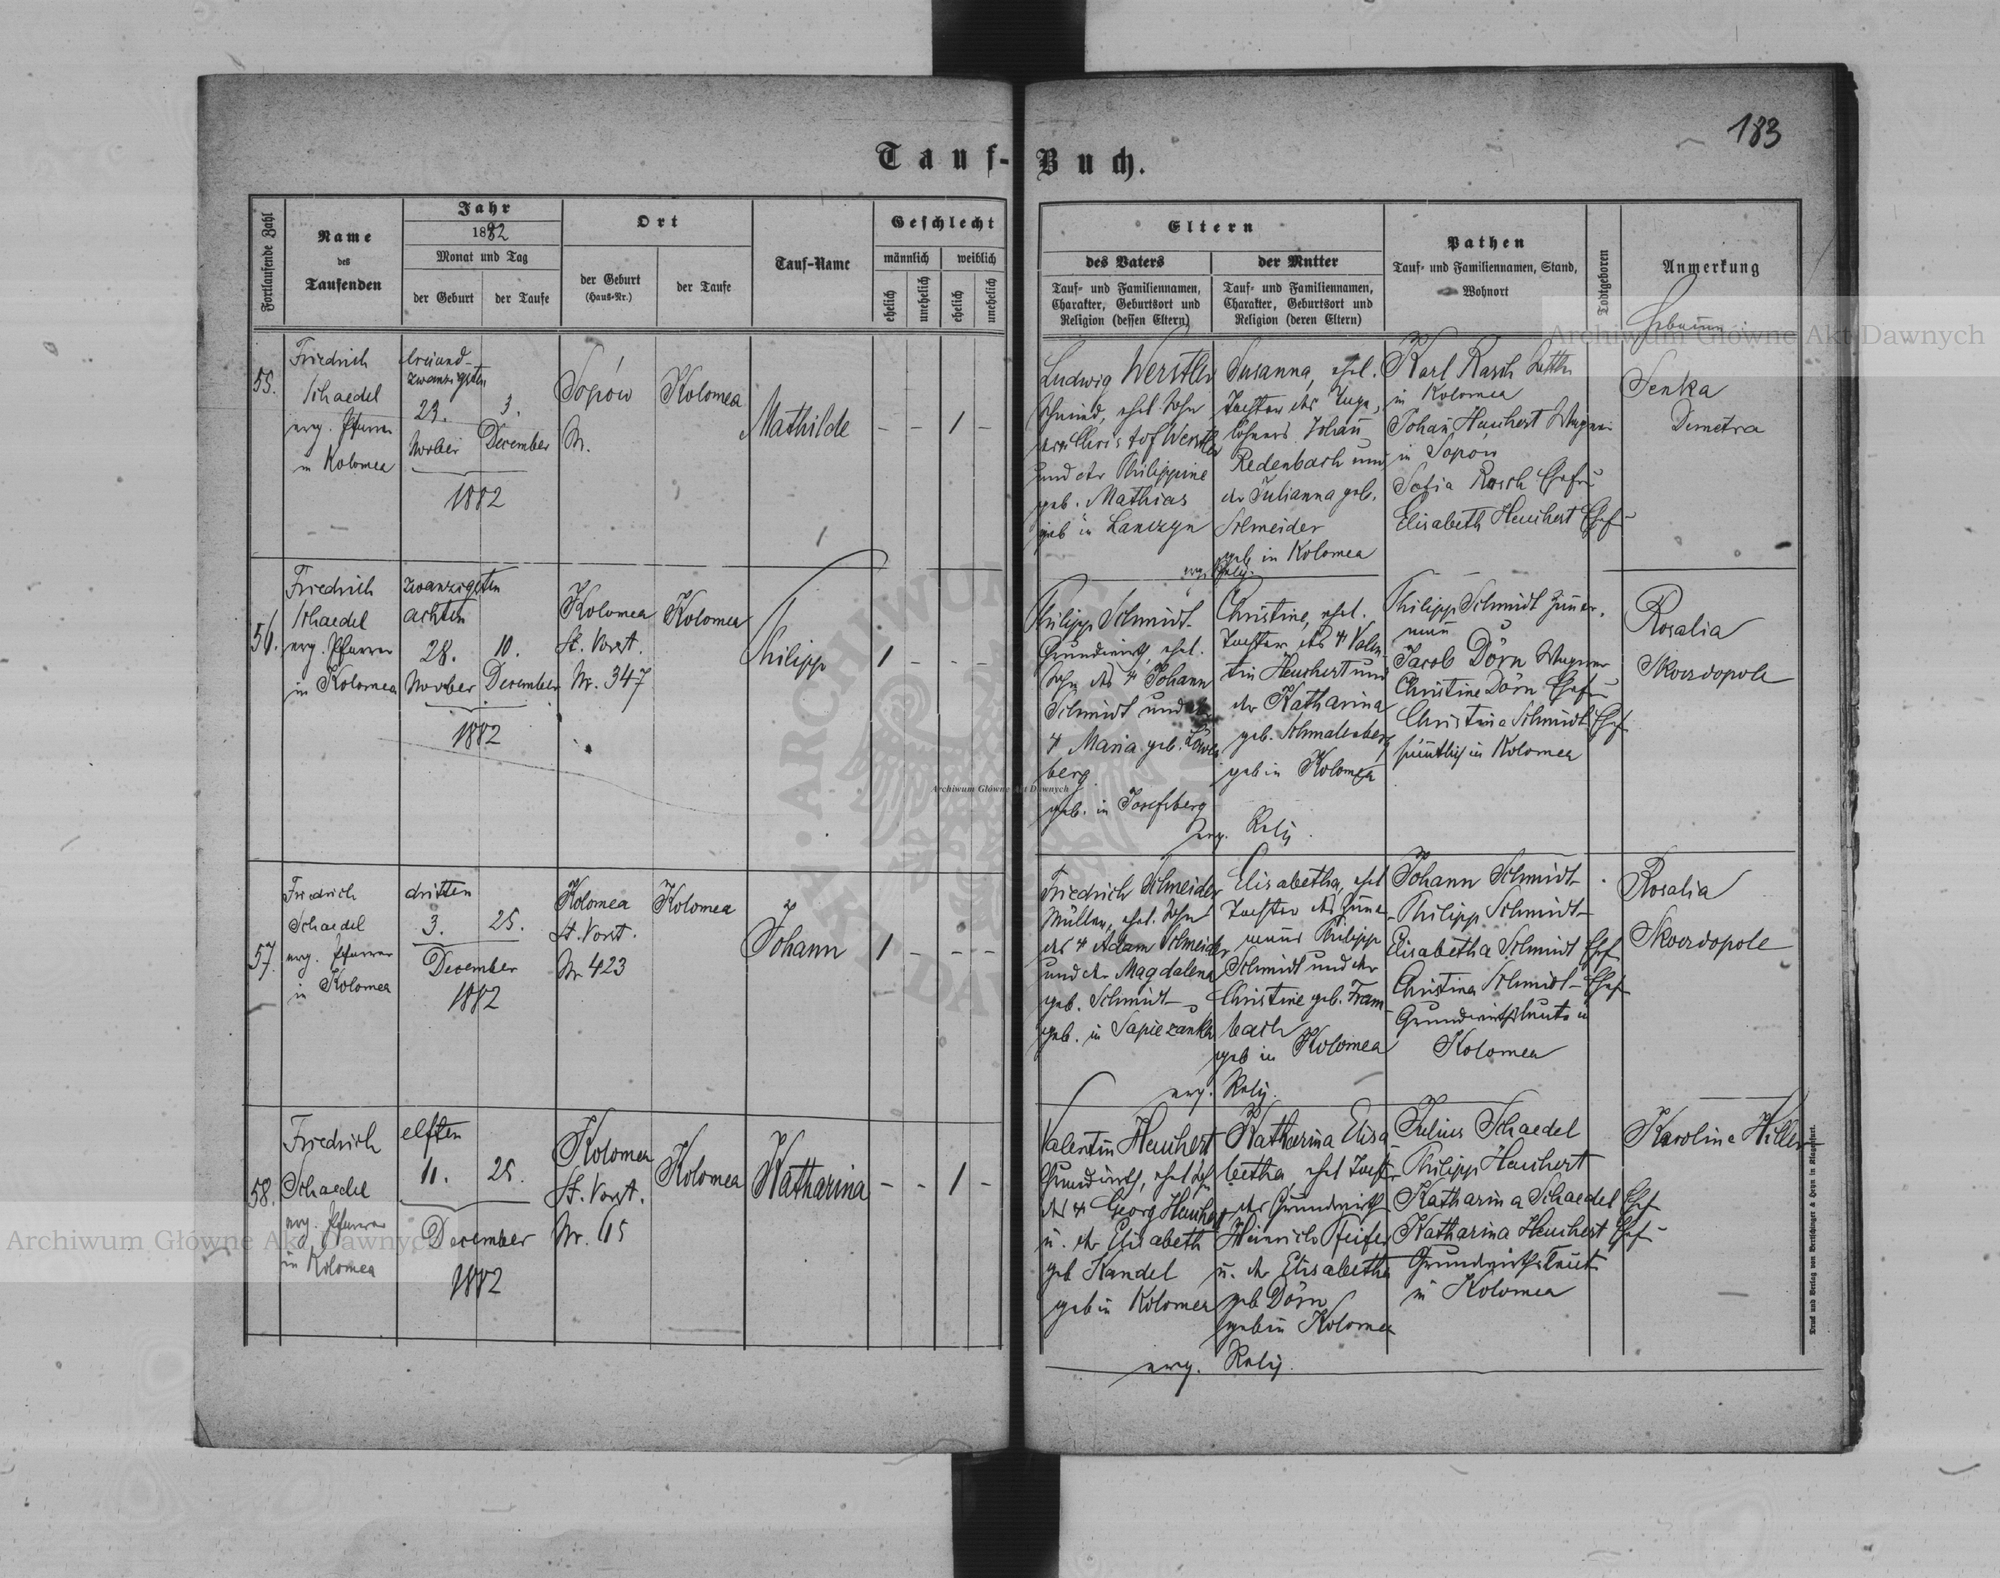 183
Tauf-Buch.
Fortlaufende Zahl
Name
des
Taufenden
Jahr
1882
Monat und Tag
der Geburt
der Taufe
Ort
der Geburt
(Haus-Nr.)
der Taufe
Tauf-Name
Geschlecht
männlich
weiblich
ehelich
unehelich
ehelich
unehelich
Eltern
des Vaters
Tauf- und Familiennamen,
Charakter, Geburtsort und
Religion (dessen Eltern)
der Mutter
Tauf- und Familiennamen,
Charakter, Geburtsort und
Religion (deren Eltern)
Pathen
Tauf- und Familiennamen, Stand,
Wohnort
Todtgeboren
Anmerkung
55.
Friedrich
Schaedel
evg. Pfarrer
in Kolomea
dreiund-
zwanzigsten
23.
3.
Novber
December
1882
Sopów
Nr.
Kolomea
Mathilde
- - 1 -
Ludwig Werstler
Schmied, ehel. Sohn
des Christof Werstler
und der Philippine
geb. Mathias
geb in Lanczyn
Susanna, ehel.
Tochter des Tage,
löhners Johan̄
Redenbach und
der Julianna geb.
Schneider
geb in Kolomea
evg. Relig.
Karl Rasch
in Kolomea
Johan̄ Heuchert Wagner
in Sopow
Sofia Rasch Ehefr
Elisabeth Heuchert Ehef
Senka
Demetra
56.
Friedrich
Schaedel
evg. Pfarrer
in Kolomea
zwanzigsten
achten
28.
10.
Novber
December
1882
Kolomea
St. Vorst.
Nr. 347
Kolomea
Philipp
1 - - -
Philipp Schmidt
Grundwirth, ehel.
Sohn des † Johann
Schmidt und der
† Maria geb.
berg
geb. in Josefsberg
Christine, ehel.
Tochter des † Valen
tin Heuchert und
der Katharina
geb. Schmalenberg
geb in Kolomea
evg. Relig.
Philipp Schmidt Zim̄er.
man̄
Jacob Dörn Wagner
Christine Dörn Ehefr
Christina Schmidt Ehef
sämtlich in Kolomea
Rosalia
Skwzdopole
57.
Friedrich
Schaedel
evg. Pfarrer
in Kolomea
dritten
3.
25.
December
1882
Kolomea
St. Vorst.
Nr 423
Kolomea
Johann
1 - - -
Friedrich Schneider
Müller, ehel. Sohn
des † Adam Schneider
und der Magdalena
geb. Schmidt
geb. in Sapiezanka
Elisabetha, ehel
Tochter des Zim̄er
manns Philipp
Schmidt und der
Christine geb. Fram-
bach
geb in Kolomea
evg. Relig.
Johann Schmidt
Philipp Schmidt
Elisabetha Schmidt Ehef
Christina Schmidt Ehef
Grundwirthsleute in
Kolomea
Rosalia
Skwzdopole
58.
Friedrich
Schaedel
evg. Pfarrer
in Kolomea
elften
11.
25.
December
1882
Kolomea
St. Vorst.
Nr. 615
Kolomea
Katharina
- - 1 -
Valentin Heuchert
Grundwirth, ehel Sohn
des † Georg Heuchert
u. der Elisabeth
geb Kandel
geb in Kolomea
Katharina Elisa
betha, ehel Tochter
des Grundwirth
Heinrich Pfeifer
u. der Elisabetha
geb Dörn
geb in Kolomea
evg. Relig.
Julius Schaedel
Philipp Heuchert
Katharina Schaedel Ehef
Katharina Heuchert Ehef
Grundwirthsleute
in Kolomea
Karolina Hiller
Druck und Verlag von Bertschinger & Heyn in Klagenfurt.
Archiwum Główne Akt Dawnych
Archiwum Główne Akt Dawnych
Archiwum Główne Akt Dawnych